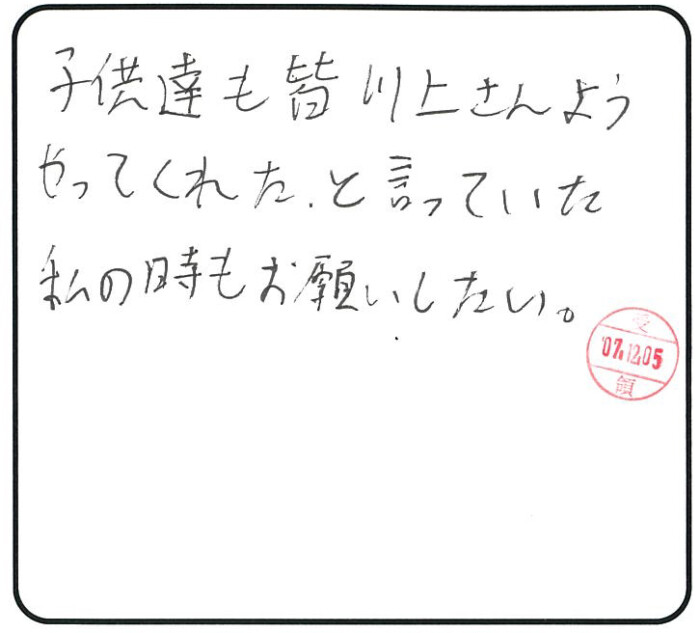 子供達も皆川上さんよう
やってくれた、と言っていた
私の時もお願いしたい。
受
'07.12.05
領